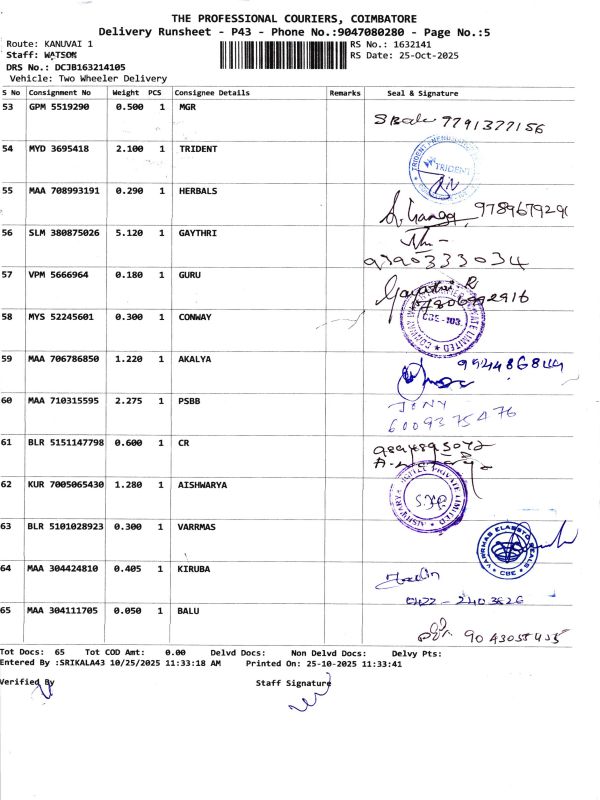 THE PROFESSIONAL COURIERS, COIMBATORE
Delivery Runsheet - P43 - Phone No.:9047080280 - Page No.:5
Route: KANUVAI 1 RS No.: 1632141
Staff: WATSON RS Date: 25-Oct-2025
DRS No.: DCJB163214105
Vehicle: Two Wheeler Delivery
S No Consignment No Weight PCS Consignee Details Remarks Seal & Signature
53 GPM 5519290 0.500 1 MGR
9791377156
54 MYD 3695418 2.100 1 TRIDENT
TRIDENT
55 MAA 708993191 0.290 1 HERBALS
9789679291
56 SLM 380875026 5.120 1 GAYTHRI
9790333034
57 VPM 5666964 0.180 1 GURU
Gayathri R
58 MYS 52245601 0.300 1 CONWAY
CBE-103
PRIVATE LIMITED
59 MAA 706786850 1.220 1 AKALYA
60 MAA 710315595 2.275 1 PSBB
JONY
6009375476
61 BLR 5151147798 0.600 1 CR
62 KUR 7005065430 1.280 1 AISHWARYA
AISHWARYA HOTEL PRIVATE LIMITED
63 BLR 5101028923 0.300 1 VARRMAS
VARRMAS ELASSTO SEALS
CBE
64 MAA 304424810 0.405 1 KIRUBA
0422-2403626
65 MAA 304111705 0.050 1 BALU
Tot Docs: 65 Tot COD Amt: 0.00 Delvd Docs: Non Delvd Docs: Delvy Pts:
Entered By :SRIKALA43 10/25/2025 11:33:18 AM Printed On: 25-10-2025 11:33:41
Verified By Staff Signature